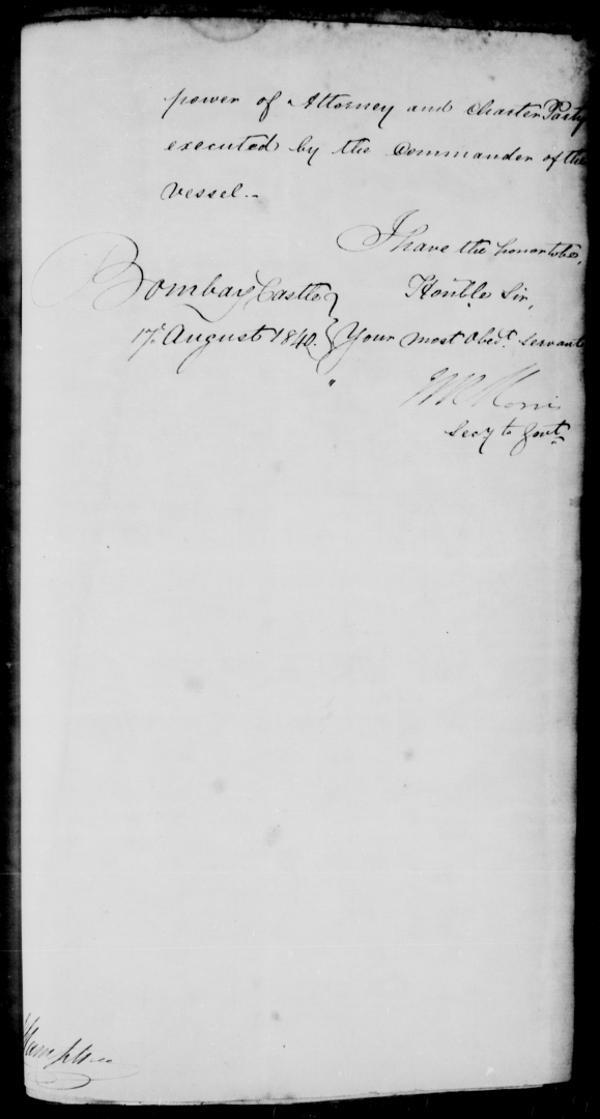 power of Attorney and Charter Party
executed by the Commander of the
vessel.-
I have the honor to be,
Bombay Castle
Honble Sir,
17th August 1840.
Your most Obedt. Servant
Secy to Govt.